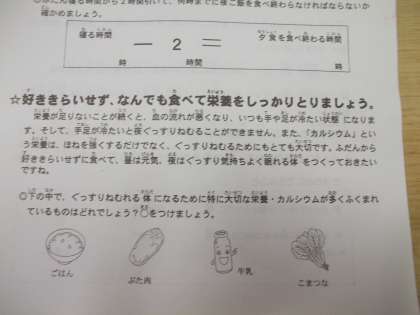 ◎ふだん寝る時間から2時間引いて、何時までに夜ご飯を食べ終わらなければならないか
確かめましょう。
寝る時間 ― 2 ＝ 夕食を食べ終わる時間
時 時間 時
☆好ききらいせず、なんでも食べて栄養をしっかりとりましょう。
栄養が足りないことが続くと、血の流れが悪くなり、いつも手や足が冷たい状態になりま
す。そして、手足が冷たいと夜ぐっすりねむることができません。また、「カルシウム」とい
う栄養は、ほねを強くするだけでなく、ぐっすりねむるためにもとても大切です。ふだんから
好ききらいせずに食べて、昼は元気、夜はぐっすり気持ちよく眠れる体をつくっておきたい
ですね。
◎下の中で、ぐっすりねむれる体になるために特に大切な栄養・カルシウムが多くふくまれ
ているものはどれでしょう？○をつけましょう。
ごはん
ぶた肉
牛乳
こまつな